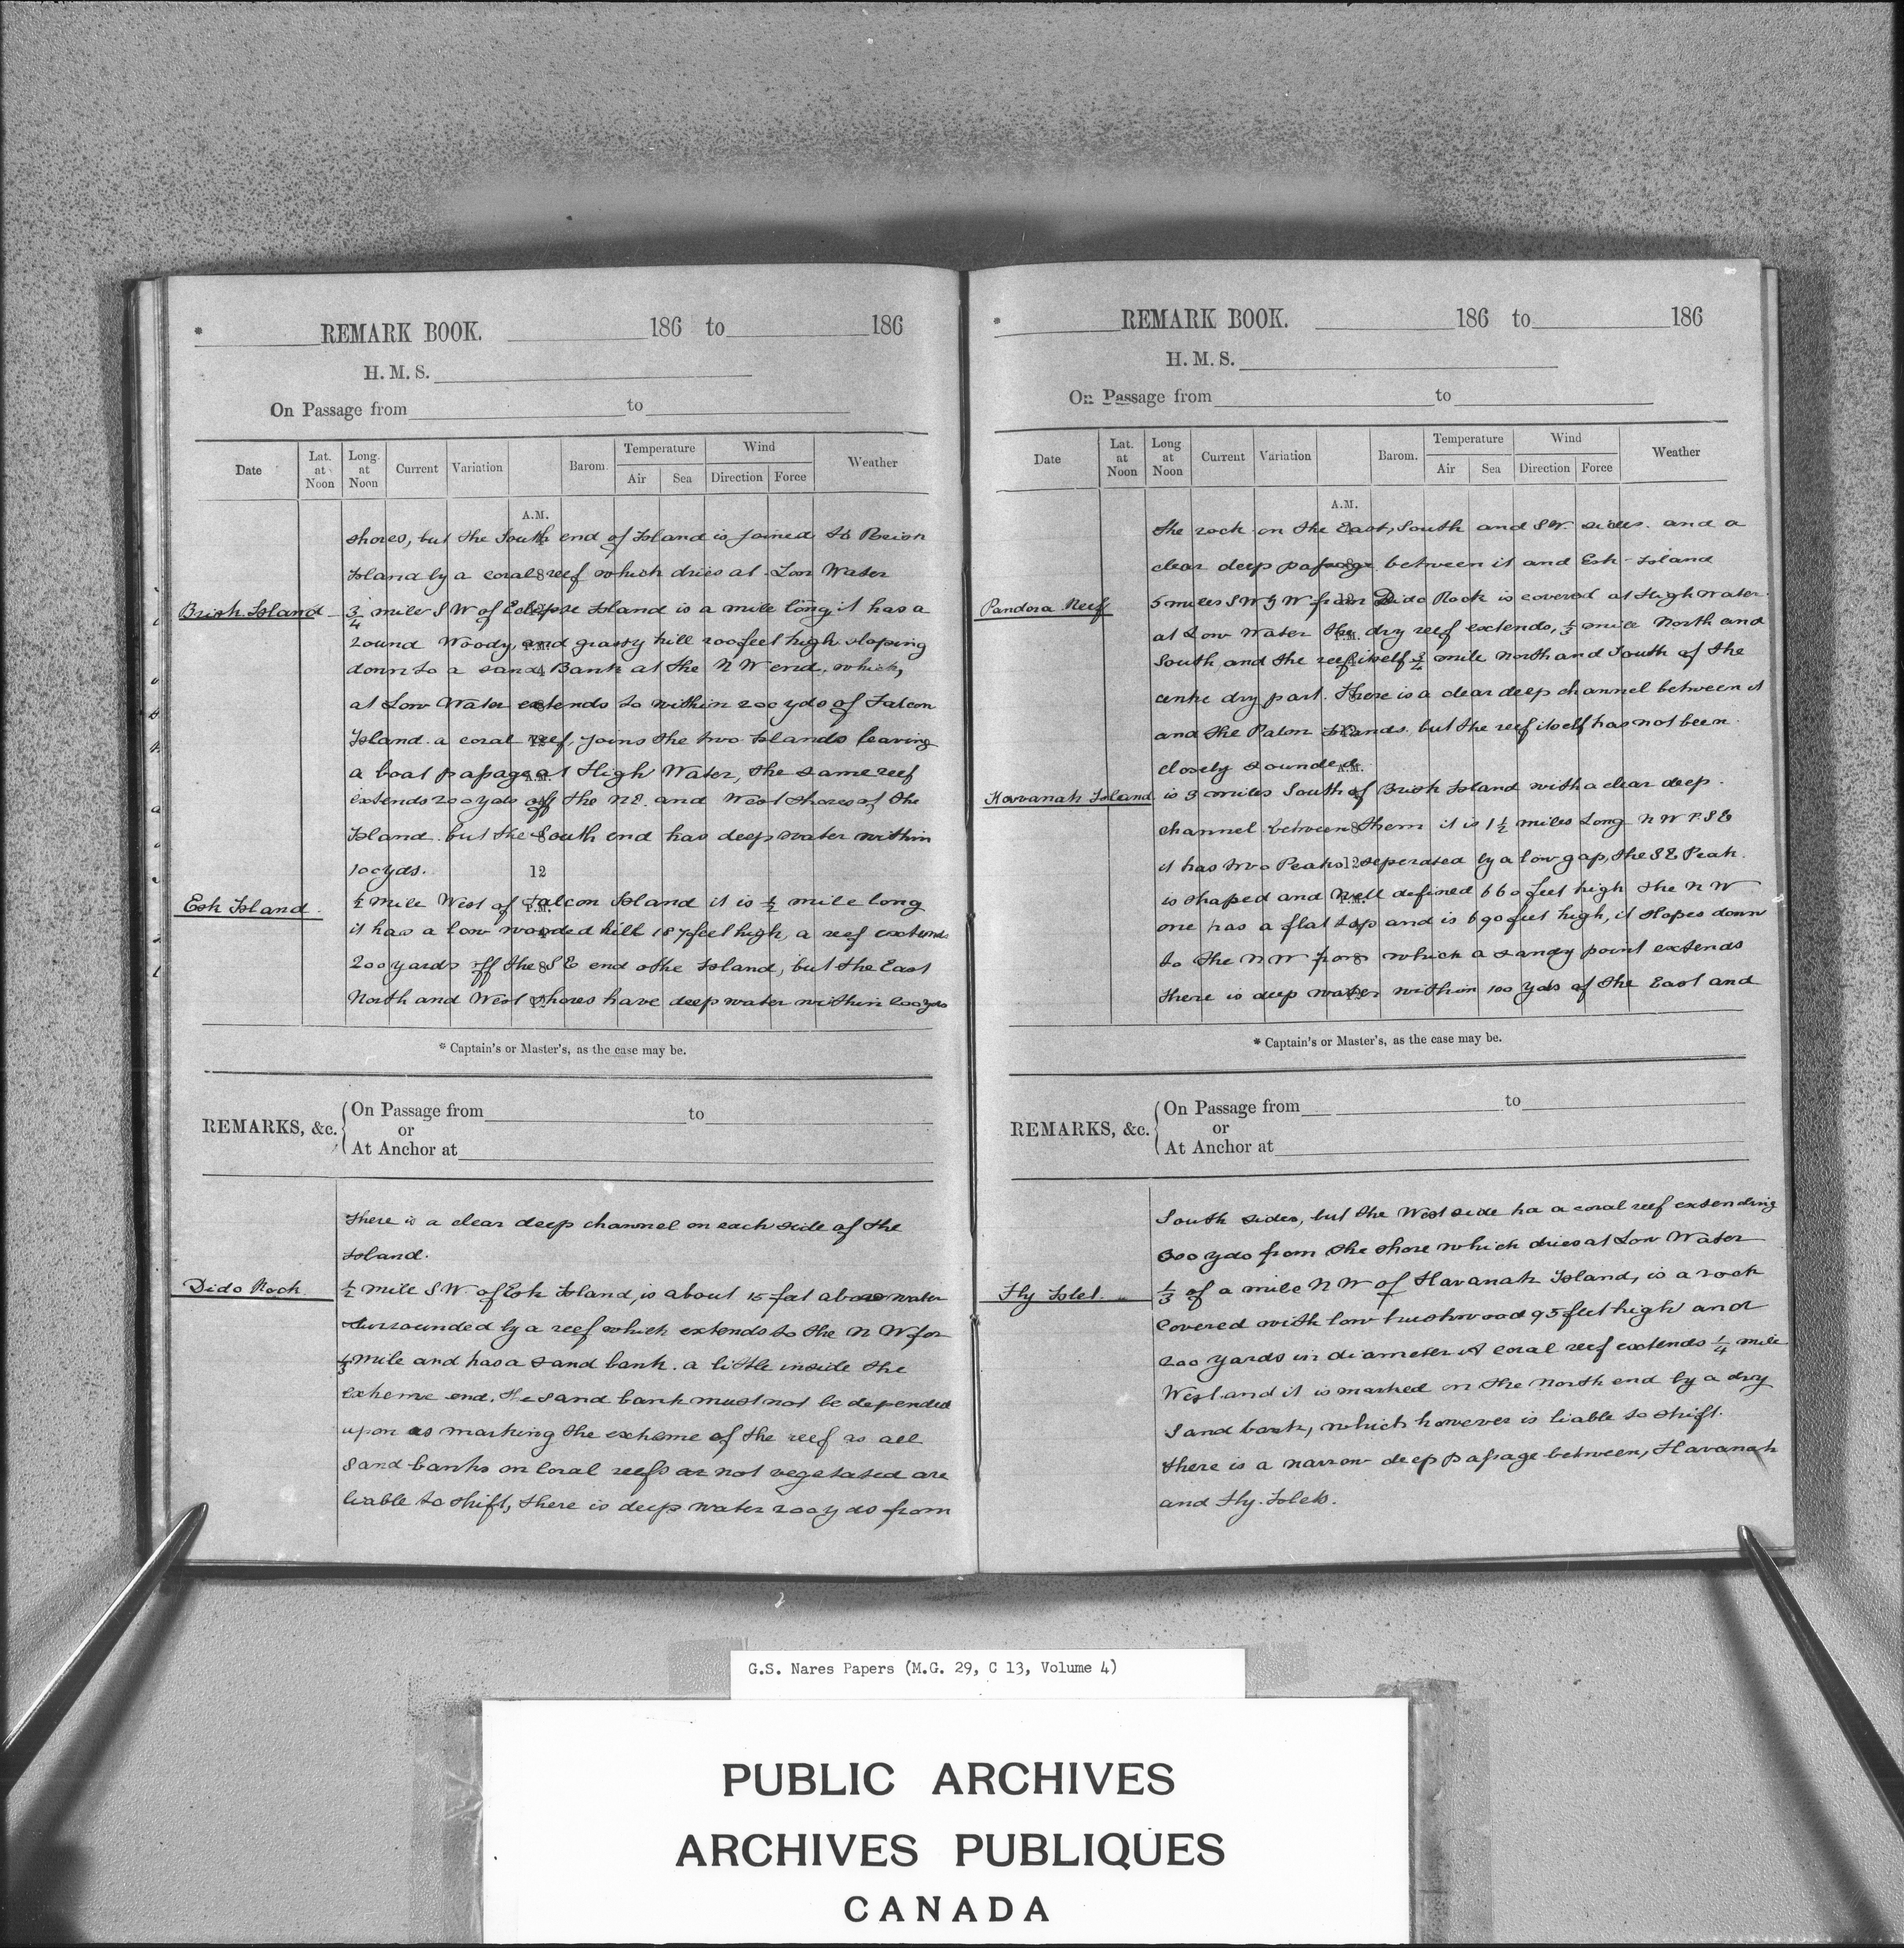 * REMARK BOOK. 186 to 186
H. M. S.
On Passage from to
Date Lat. at Noon Long. at Noon Current Variation Barom. Temperature Air Sea Wind Direction Force Weather
A.M.
shores, but the South end of Island is joined to Brisk
Island by a coral reef which dries at Low Water
Brisk Island 3/4 mile SW of Eclipse Island is a mile long, it has a
round Woody, and grassy hill 200 feet high sloping
down to a sand Bank at the NW end, which,
at Low Water extends to within 200 yds of Falcon
Island. a coral reef, joins the two Islands leaving
a boat passage at High Water, the same reef
extends 200 yds off the NE. and West shores of the
Island. but the South end has deep water within
100 yds. 12
Esk Island. 1/2 mile West of Falcon Island it is 1/2 mile long
it has a low wooded hill 187 feet high, a reef extends
200 yards off the SE end othe Island, but the East
North and West shores have deep water within 200 yds
* Captain's or Master's, as the case may be.
REMARKS, &c. On Passage from to
or
At Anchor at
there is a clear deep channel on each side of the
Island.
Dido Rock. 1/2 mile SW. of Esk Island, is about 15 feet above water
surrounded by a reef which extends to the NW for
1/3 mile and has a sand bank. a little inside the
extreme end. The sand bank must not be depended
upon as marking the extreme of the reef as all
Sand banks on Coral reefs as not vegetated are
liable to shift, there is deep water 200 yds from
* REMARK BOOK. 186 to 186
H. M. S.
On Passage from to
Date Lat. at Noon Long at Noon Current Variation Barom. Temperature Air Sea Wind Direction Force Weather
A.M.
the rock on the East, South and SW. sides. and a
clear deep passage between it and Esk Island
Pandora Reef 5 miles SW 3/4 W from Dido Rock is covered at High water.
at Low Water the dry reef extends, 1/3 mile North and
South, and the reef itself 3/4 mile north and South of the
centre dry part. There is a clear deep channel between it
and the Palm Islands. but the reef itself has not been
closely sounded.
Havanah Island is 3 miles South of Brisk Island with a clear deep.
channel between them it is 1 1/2 miles Long NW & SE
it has two Peaks seperated by a low gap, the SE Peak.
is shaped and well defined 660 feet high the NW
one has a flat top and is 690 feet high, it slopes down
to the NW from which a sandy point extends
there is deep water within 100 yds of the East and
* Captain's or Master's, as the case may be.
REMARKS, &c. On Passage from to
or
At Anchor at
South sides, but the West side ha a coral reef extending
300 yds from the shore which dries at Low Water
Fly Islet. 1/3 of a mile NW of Havanah Island, is a rock
Covered with low brushwood 95 feet high and
200 yards in diameter A coral reef extends 1/4 mile
West. and it is marked on the North end by a dry
Sand bank, which however is liable to shift.
there is a narrow deep passage between, Havanah
and Fly. Islets.
G.S. Nares Papers (M.G. 29, C 13, Volume 4)
PUBLIC ARCHIVES
ARCHIVES PUBLIQUES
CANADA